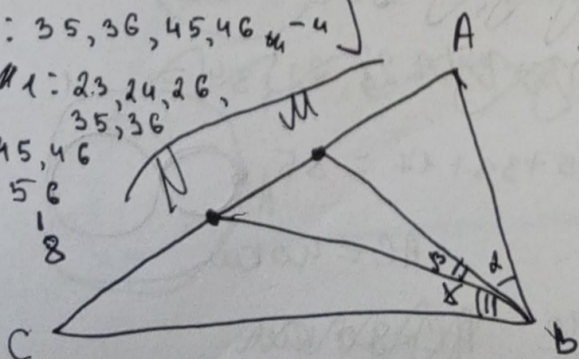 : 35, 36, 45, 46
1: 23, 24, 26,
35, 36
45, 46
56
8
A
M
N
C
B
α
β
γ